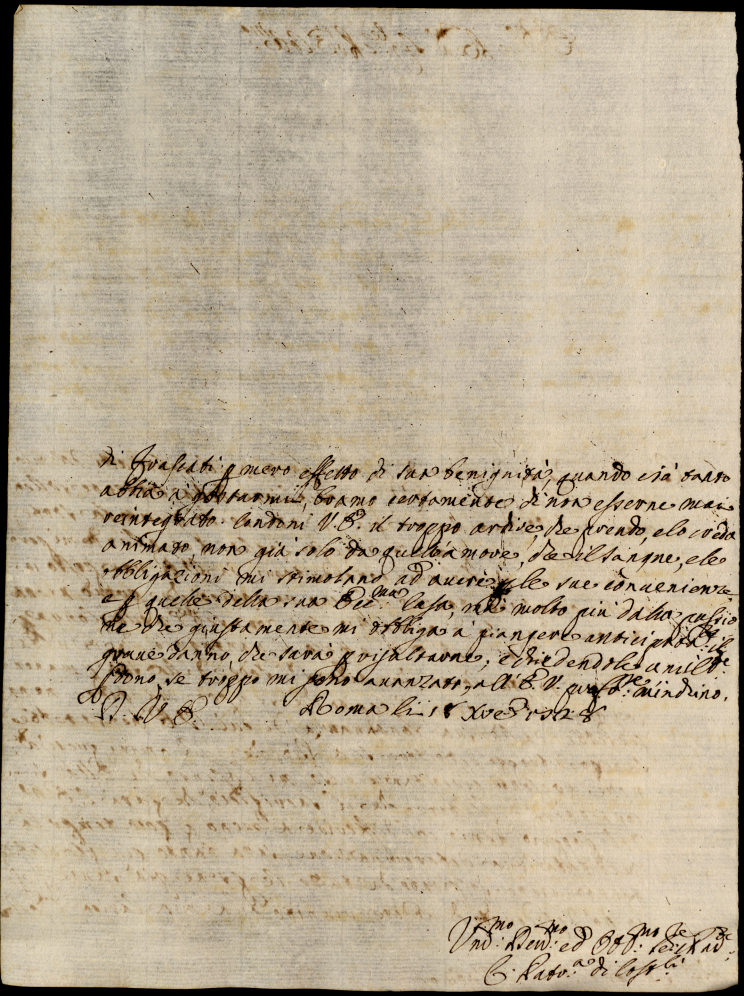 di Frascati p mero effetto di sua benignità, quando ciò tanto
abbia a portarmi, bramo certamente di non esserne mai
reintegrato. Condoni V.E. il troppo ardire, che prendo, e lo creda
animato non già solo da quell'amore, che il sangue, e le
obbligazioni mi stimolano ad avere p le sue convenienze
e p quelle della sua Ecc.ma Casa, mà molto più dalla
ne che giustamente mi obbliga à piangere anticipatam.te il
grave danno, che sarà p risultarne, e chiedendole umilm.te
pdono, se troppo mi sono avanzato, all'E.V. m'inchino.
D. V. E. Roma li 18 Xbre 1728
Um.mo Dev.mo ed Obb.mo
di